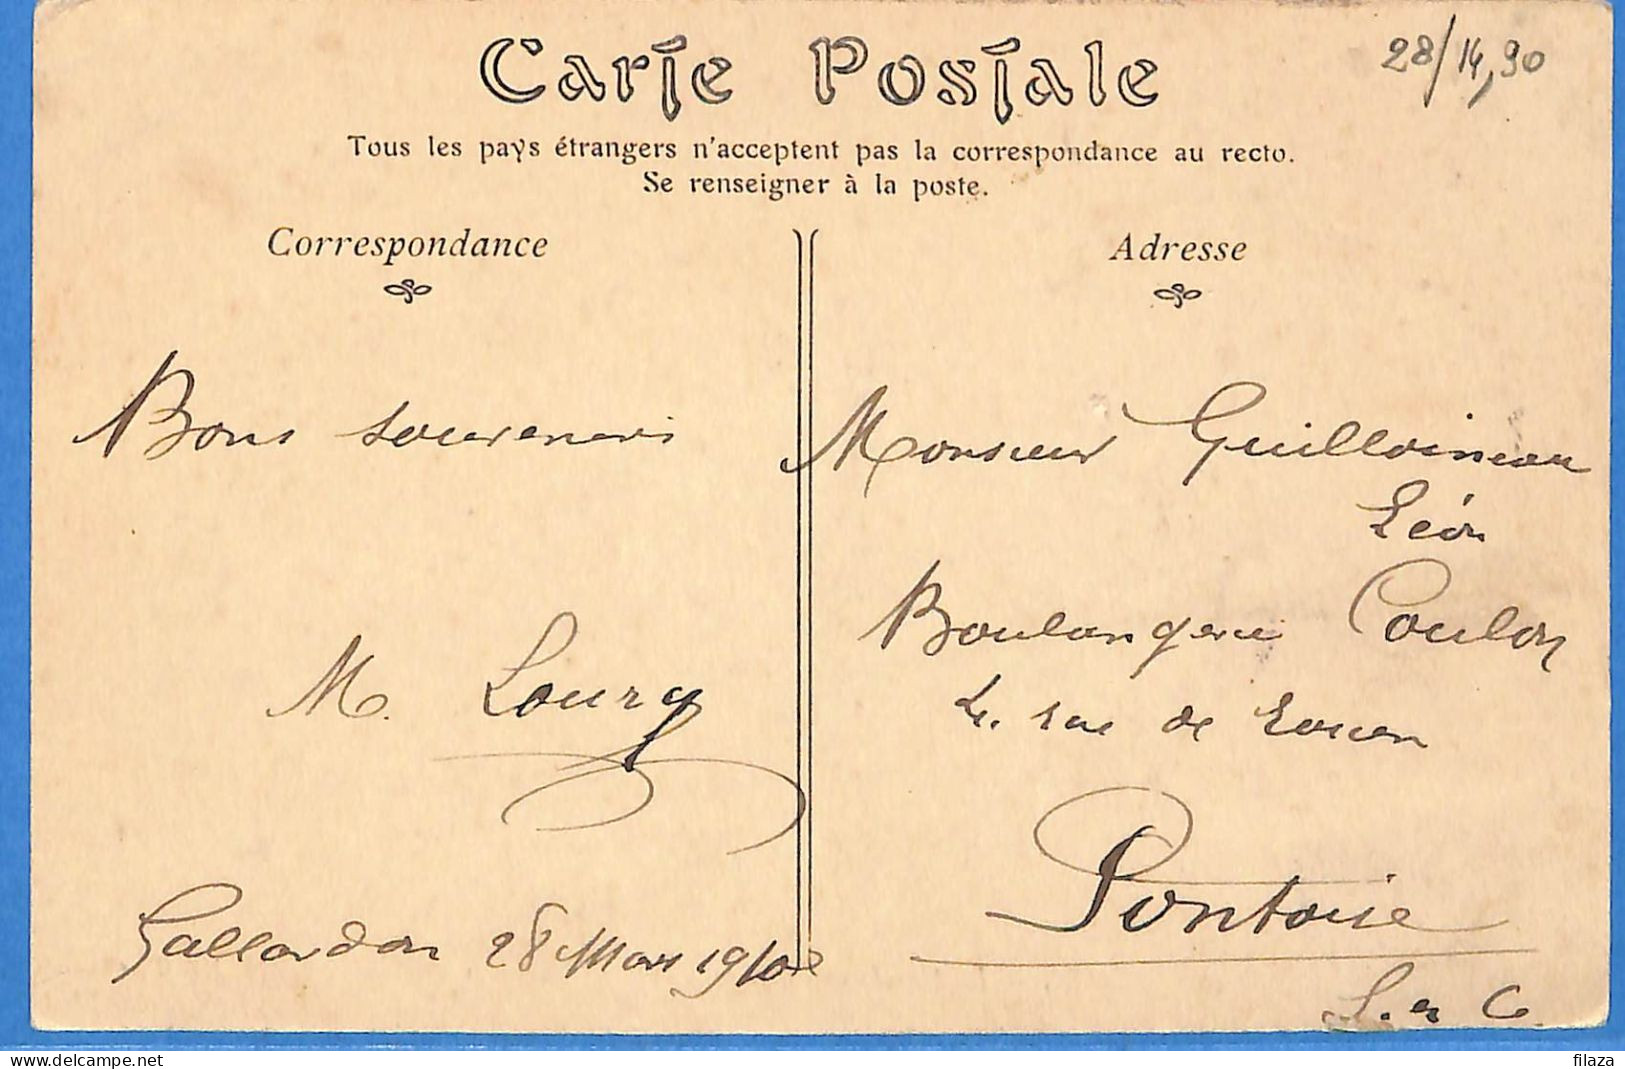 Carte Postale
28/14,90
Tous les pays étrangers n'acceptent pas la correspondance au recto.
Se renseigner à la poste.
Correspondance
Bons souvenirs
M. Loury
Gallardon 28 Mars 1910
Adresse
Monsieur Guilloineau
Léon
Boulangerie Coulon
rue de Rouen
Pontoise
S. et O.
filaza
www.delcampe.net